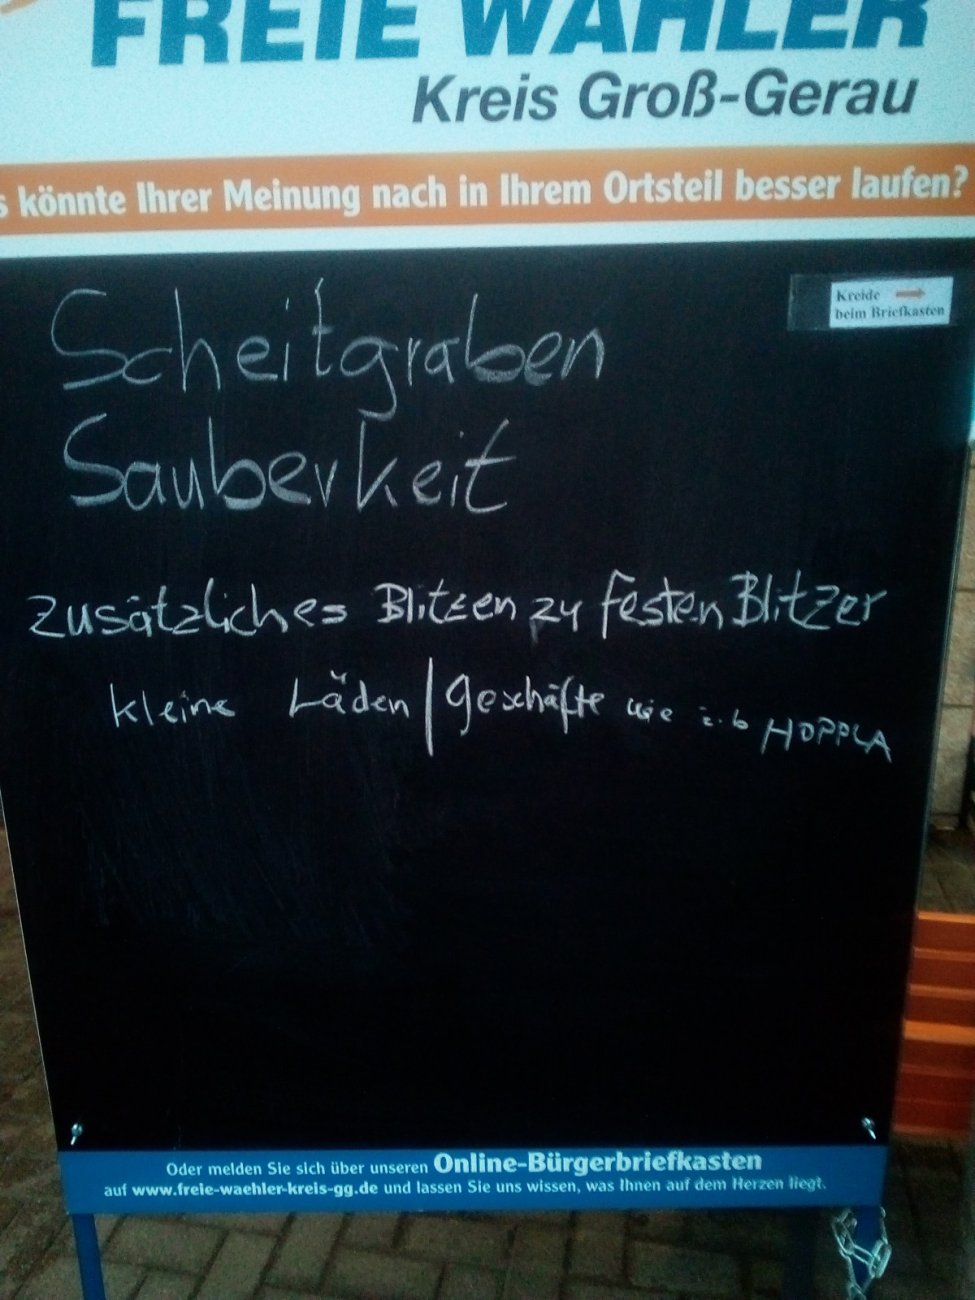 FREIE WÄHLER
Kreis Groß-Gerau
s könnte Ihrer Meinung nach in Ihrem Ortsteil besser laufen?
Kreide →
beim Briefkasten
Scheitgraben
Sauberkeit
zusätzliches Blitzen zu festen Blitzer
kleine Läden/Geschäfte wie z.b HOPPLA
Oder melden Sie sich über unseren Online-Bürgerbriefkasten
auf www.freie-waehler-kreis-gg.de und lassen Sie uns wissen, was Ihnen auf dem Herzen liegt.